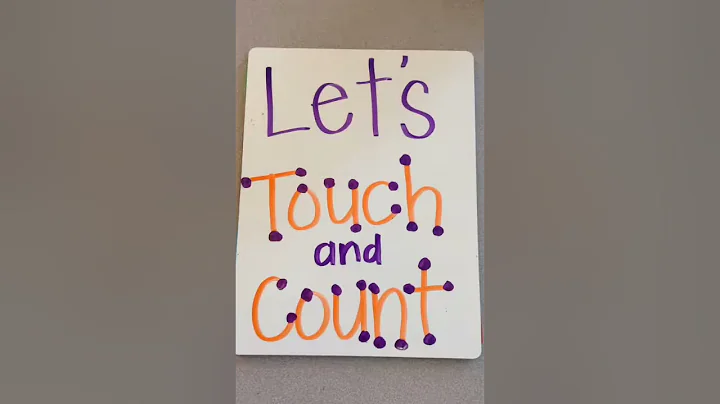 Let's
Touch
and
Count